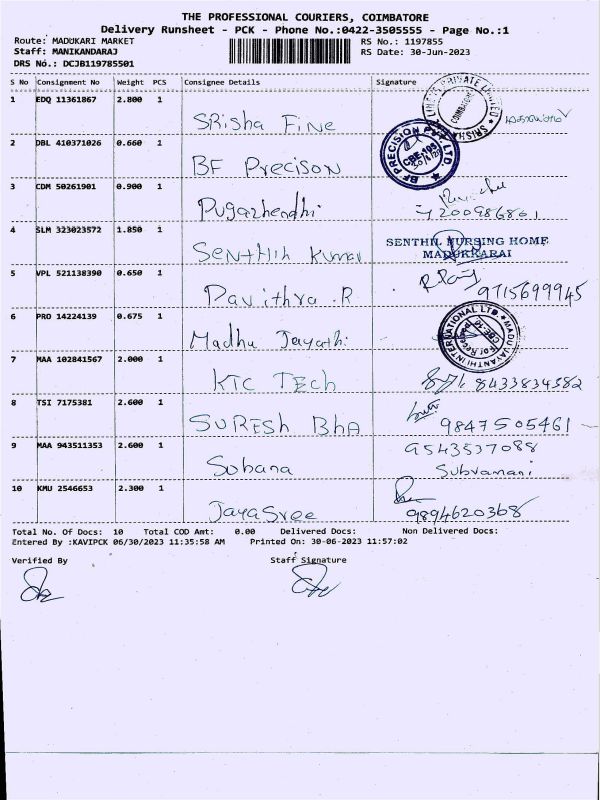 THE PROFESSIONAL COURIERS, COIMBATORE
Delivery Runsheet - PCK - Phone No.:0422-3505555 - Page No.:1
Route: MADUKARI MARKET RS No.: 1197855
Staff: MANIKANDARAJ RS Date: 30-Jun-2023
DRS No.: DCJB119785501
S No Consignment No Weight PCS Consignee Details Signature
1 EDQ 11361867 2.800 1 SRisha Fine
SRISHA PRIVATE LIMITED COIMBATORE
2 DBL 410371026 0.660 1 BF Precison
BF PRECISION PVT. LTD. CBE-105
3 CDM 50261901 0.900 1 Pugazhendhi
7200986861
4 SLM 323023572 1.850 1 Senthil Kumar
SENTHIL NURSING HOME
MADUKKARAI
5 VPL 521138390 0.650 1 Pavithra .R 9715699945
6 PRO 14224139 0.675 1 Madhu Jayathi
MADHU JAYANTHI INTERNATIONAL LTD.
7 MAA 102841567 2.000 1 KTC Tech 8433834382
8 TSI 7175381 2.600 1 SURESH BhA 9847505461
9 MAA 943511353 2.600 1 Sobana 9543537088
Subramani
10 KMU 2546653 2.300 1 JayaSree 9894620368
Total No. Of Docs: 10 Total COD Amt: 0.00 Delivered Docs: Non Delivered Docs:
Entered By :KAVIPCK 06/30/2023 11:35:58 AM Printed On: 30-06-2023 11:57:02
Verified By Staff Signature